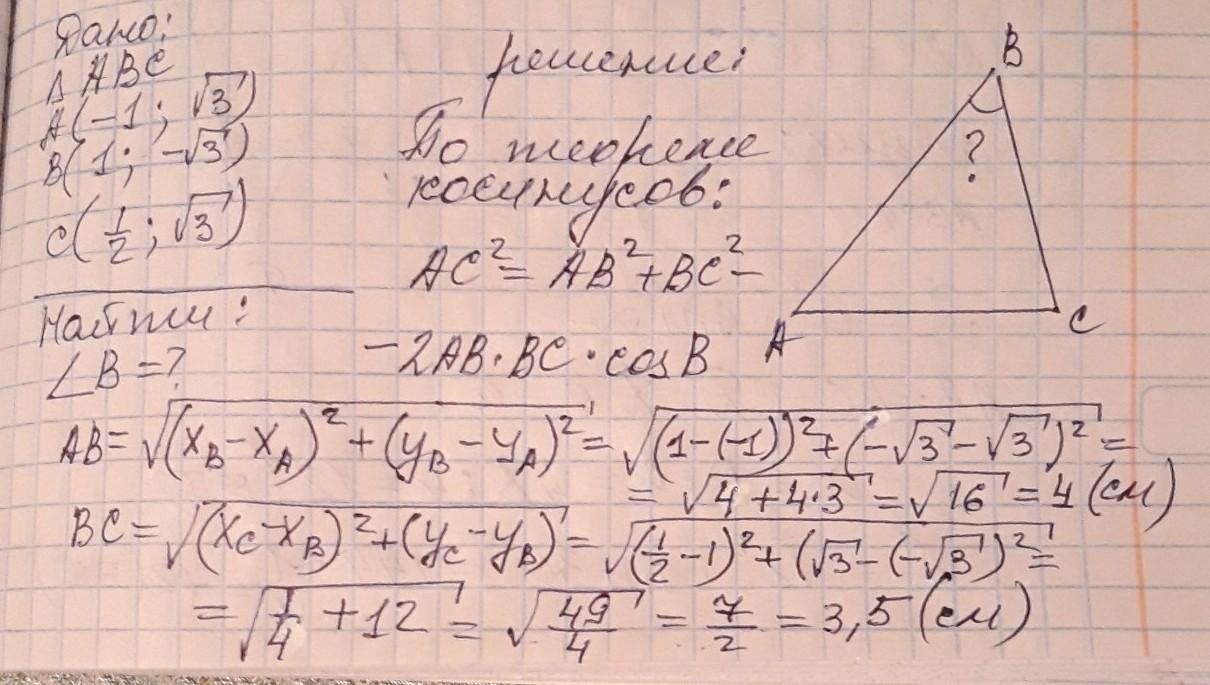 Дано:
Δ ABC
A(-1; √3)
B(1; -√3)
C(1/2; √3)
Найти:
∠B=?
решение:
По теореме
косинусов:
AC²= AB²+BC²-
-2AB·BC·cosB
B
?
A
C
AB= √((x_B-x_A)²+(y_B-y_A)²) = √((1-(-1))²+(-√3-√3)²) =
= √(4+4·3) = √16 = 4 (см)
BC= √((x_C-x_B)²+(y_C-y_B)) = √((1/2-1)²+(√3-(-√3)²) =
= √(1/4+12) = √(49/4) = 7/2 = 3,5 (см)